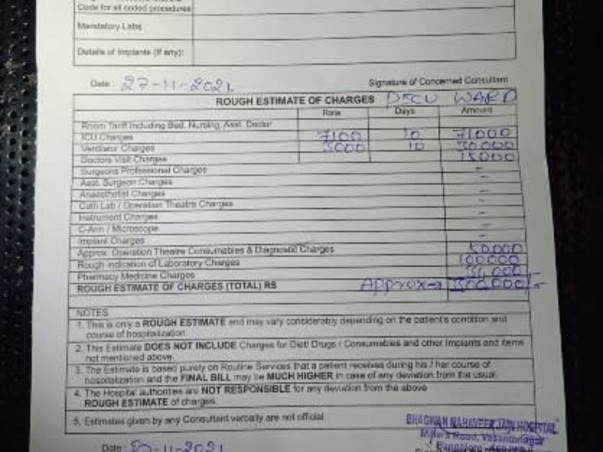 Code for all coded procedures
Mandatory Labs
Details of Implants (If any):
Date: 27-11-2021. Signature of Concerned Consultant
ROUGH ESTIMATE OF CHARGES PICU WARD
Rate Days Amount
Room Tariff Including Bed, Nursing, Asst. Doctor
ICU Charges 7100 10 71000
Ventilator Charges 3000 10 30,000
Doctors Visit Charges 15000
Surgeons Professional Charges -
Asst. Surgeon Charges -
Anaesthetist Charges -
Cath Lab / Operation Theatre Charges -
Instrument Charges -
C-Arm / Microscope -
Implant Charges -
Approx. Operation Theatre Consumables & Diagnostic Charges 50000
Rough indication of Laboratory Charges 100000
Pharmacy Medicine Charges 34,000/-
ROUGH ESTIMATE OF CHARGES (TOTAL) RS Approx→ 300,000/-
NOTES
1. This is only a ROUGH ESTIMATE and may vary considerably depending on the patient's condition and
course of hospitalization.
2. This Estimate DOES NOT INCLUDE Charges for Diet/ Drugs / Consumables and other Implants and items
not mentioned above.
3. The Estimate is based purely on Routine Services that a patient receives during his / her course of
hospitalization and the FINAL BILL may be MUCH HIGHER in case of any deviation from the usual.
4. The Hospital authorities are NOT RESPONSIBLE for any deviation from the above
ROUGH ESTIMATE of charges.
5. Estimates given by any Consultant verbally are not official.
BHAGWAN MAHAVEER JAIN HOSPITAL
Millers Road, Vasanthnagar
Date: 27-11-2021 Bangalore